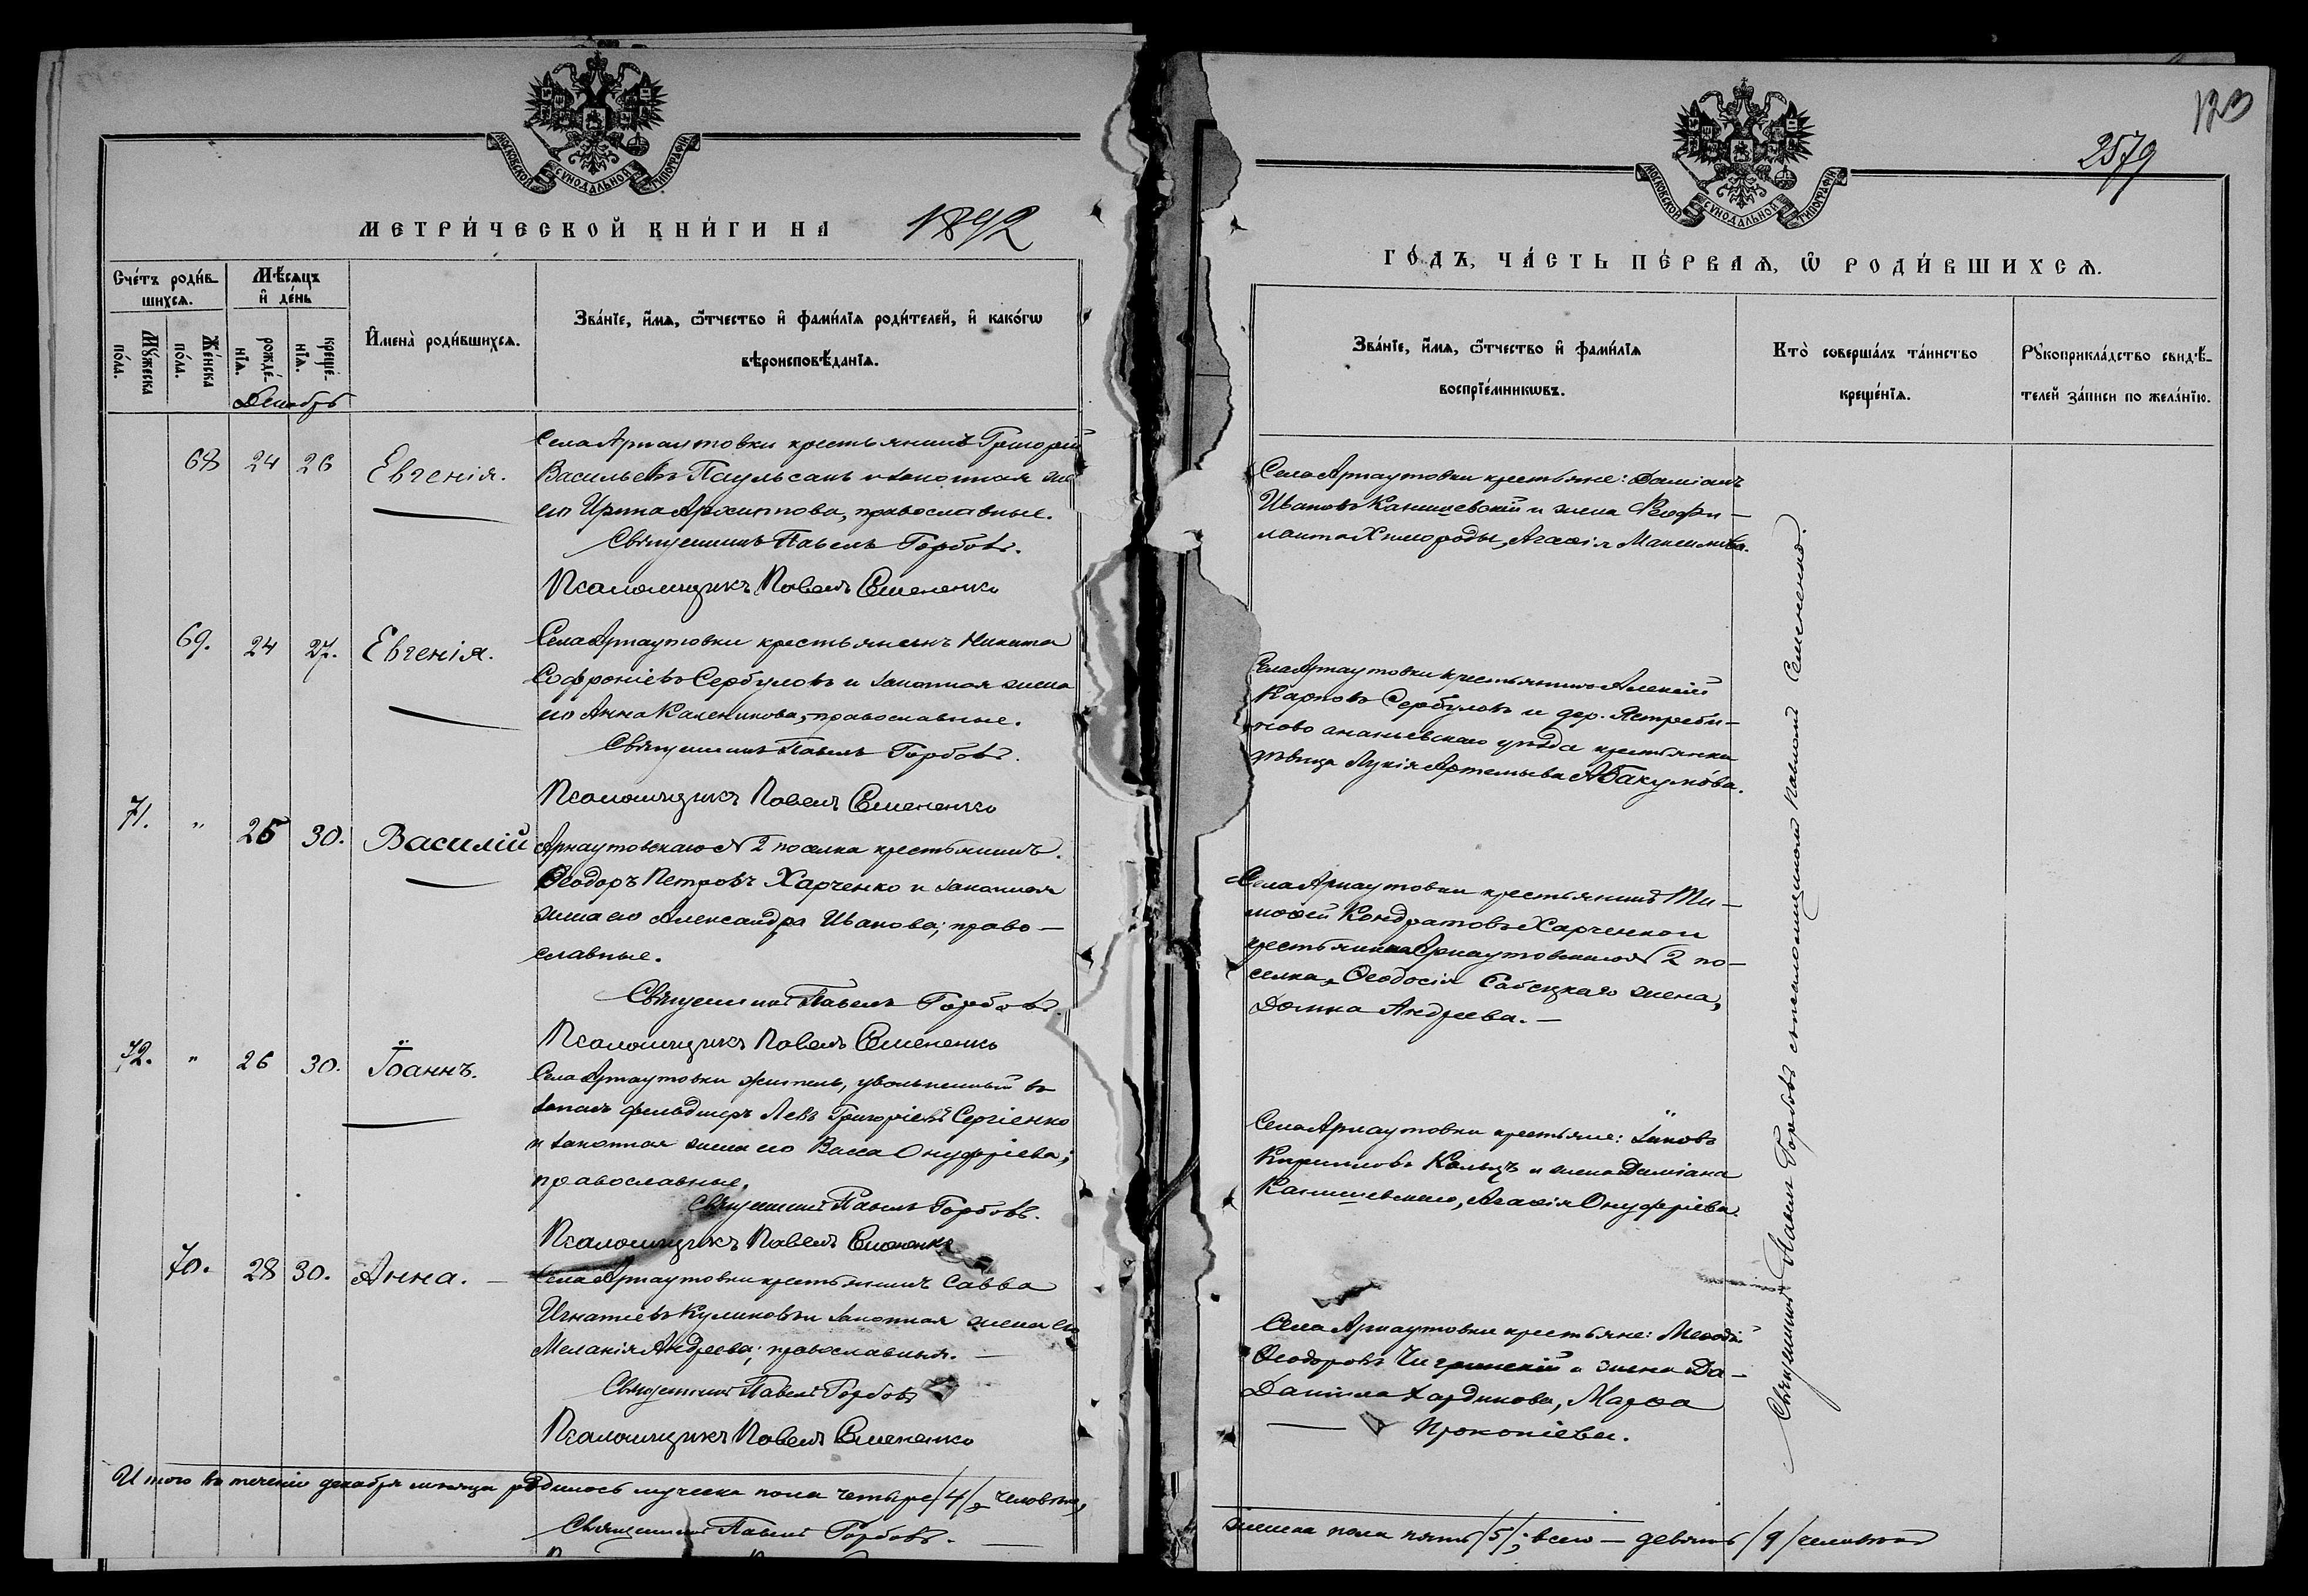 МОСКОВСКОЙ СУНОДАЛЬНОЙ ТИПОГРАФІИ
МЕТРИ́ЧЕСКОЙ КНИ́ГИ НА 1892
Сче́тъ роди́в-
шихся.
Мѣ́сяцъ
и҆ де́нь
Мꙋ́жеска
по́ла.
Же́нска
по́ла.
рожде́-
нїя.
креще́-
нїя.
И҆мена̀ роди́вшихся.
Зва́нїе, и҆́мя, ѻ҆́тчество и҆ фами́лїя роди́телей, и҆ како́гѡ
вѣроисповѣ́данїя.
Декабрь
68 24 26 Евгенія.
Села Арнаутовки крестьянинъ Григорій
Васильевъ Паульсанъ и законная же
его Ирина Архиппова, православные.
Священникъ Павелъ Горбовъ.
Псаломщикъ Павелъ Семененко
69. 24 27. Евгенія.
Села Арнаутовки крестьянинъ Никита
Софроніевъ Сербуловъ и законная жена
его Анна Каленикова, православные.
Священникъ Павелъ Горбовъ.
Псаломщикъ Павелъ Семененко
71. " 25 30. Василій
Арнаутовскаго № 2 поселка крестьянинъ
Ѳеодоръ Петровъ Харченко и законная
жена его Александра Иванова; право-
славные.
Священникъ Павелъ Горбовъ.
Псаломщикъ Павелъ Семененко
72. " 26 30. Іоаннъ.
Села Арнаутовки житель, уволенный въ
запасъ фельдшеръ Левъ Григоріевъ Сергіенко
и законная жена его Васса Онуфріева;
православные.
Священникъ Павелъ Горбовъ.
Псаломщикъ Павелъ Семененко
70. 28 30. Анна. —
Села Арнаутовки крестьянинъ Савва
Игнатіевъ Куликовъ и законная жена его
Меланія Андреева; православныя. —
Священникъ Павелъ Горбовъ
Псаломщикъ Павелъ Семененко
Итого въ теченіи декабря мѣсяца родилось мужеска пола четыре /4/, человѣка,
Священникъ Павелъ Горбовъ. —
123
2579
МОСКОВСКОЙ СУНОДАЛЬНОЙ ТИПОГРАФІИ
ГО́ДЪ, ЧА́СТЬ ПЕ́РВАЯ, Ѡ҆ РОДИ́ВШИХСЯ.
Зва́нїе, и҆́мя, ѻ҆́тчество и҆ фами́лїя
воспрїе́мникѡвъ.
Кто̀ соверша́лъ та́инство
креще́нїя.
Рꙋкоприкла́дство свидѣ́-
телей за́писи по жела́нїю.
Села Арнаутовки крестьяне: Даміанъ
Ивановъ Канишевскій и жена Ѳеофи-
лакта Хмороды, Агаѳія Максимова.
Села Арнаутовки крестьянинъ Алексій
Карповъ Сербуловъ и дер. Ястреби-
ново ананьевскаго уѣзда крестьянка
дѣвица Лукія Артемьева Абакумова.
Села Арнаутовки крестьянинъ Ти-
моѳей Кондратовъ Харченко и
крестьянина Арнаутовскаго № 2 по-
селка, Ѳеодосія Сабецкаго жена,
Домна Андреева. —
Села Арнаутовки крестьяне: Іаковъ
Кирилловъ Кальцъ и жена Даміана
Канишевскаго, Агаѳія Онуфріева.
Села Арнаутовки крестьяне: Меѳодій
Ѳеодоровъ Чигринскій и жена Да-
Даніила Хардикова, Марѳа
Прокопіева.
Священникъ Павелъ Горбовъ съ псаломщикомъ Павломъ Семененко.
женска пола пять /5/; всего — девять /9/ человѣкъ